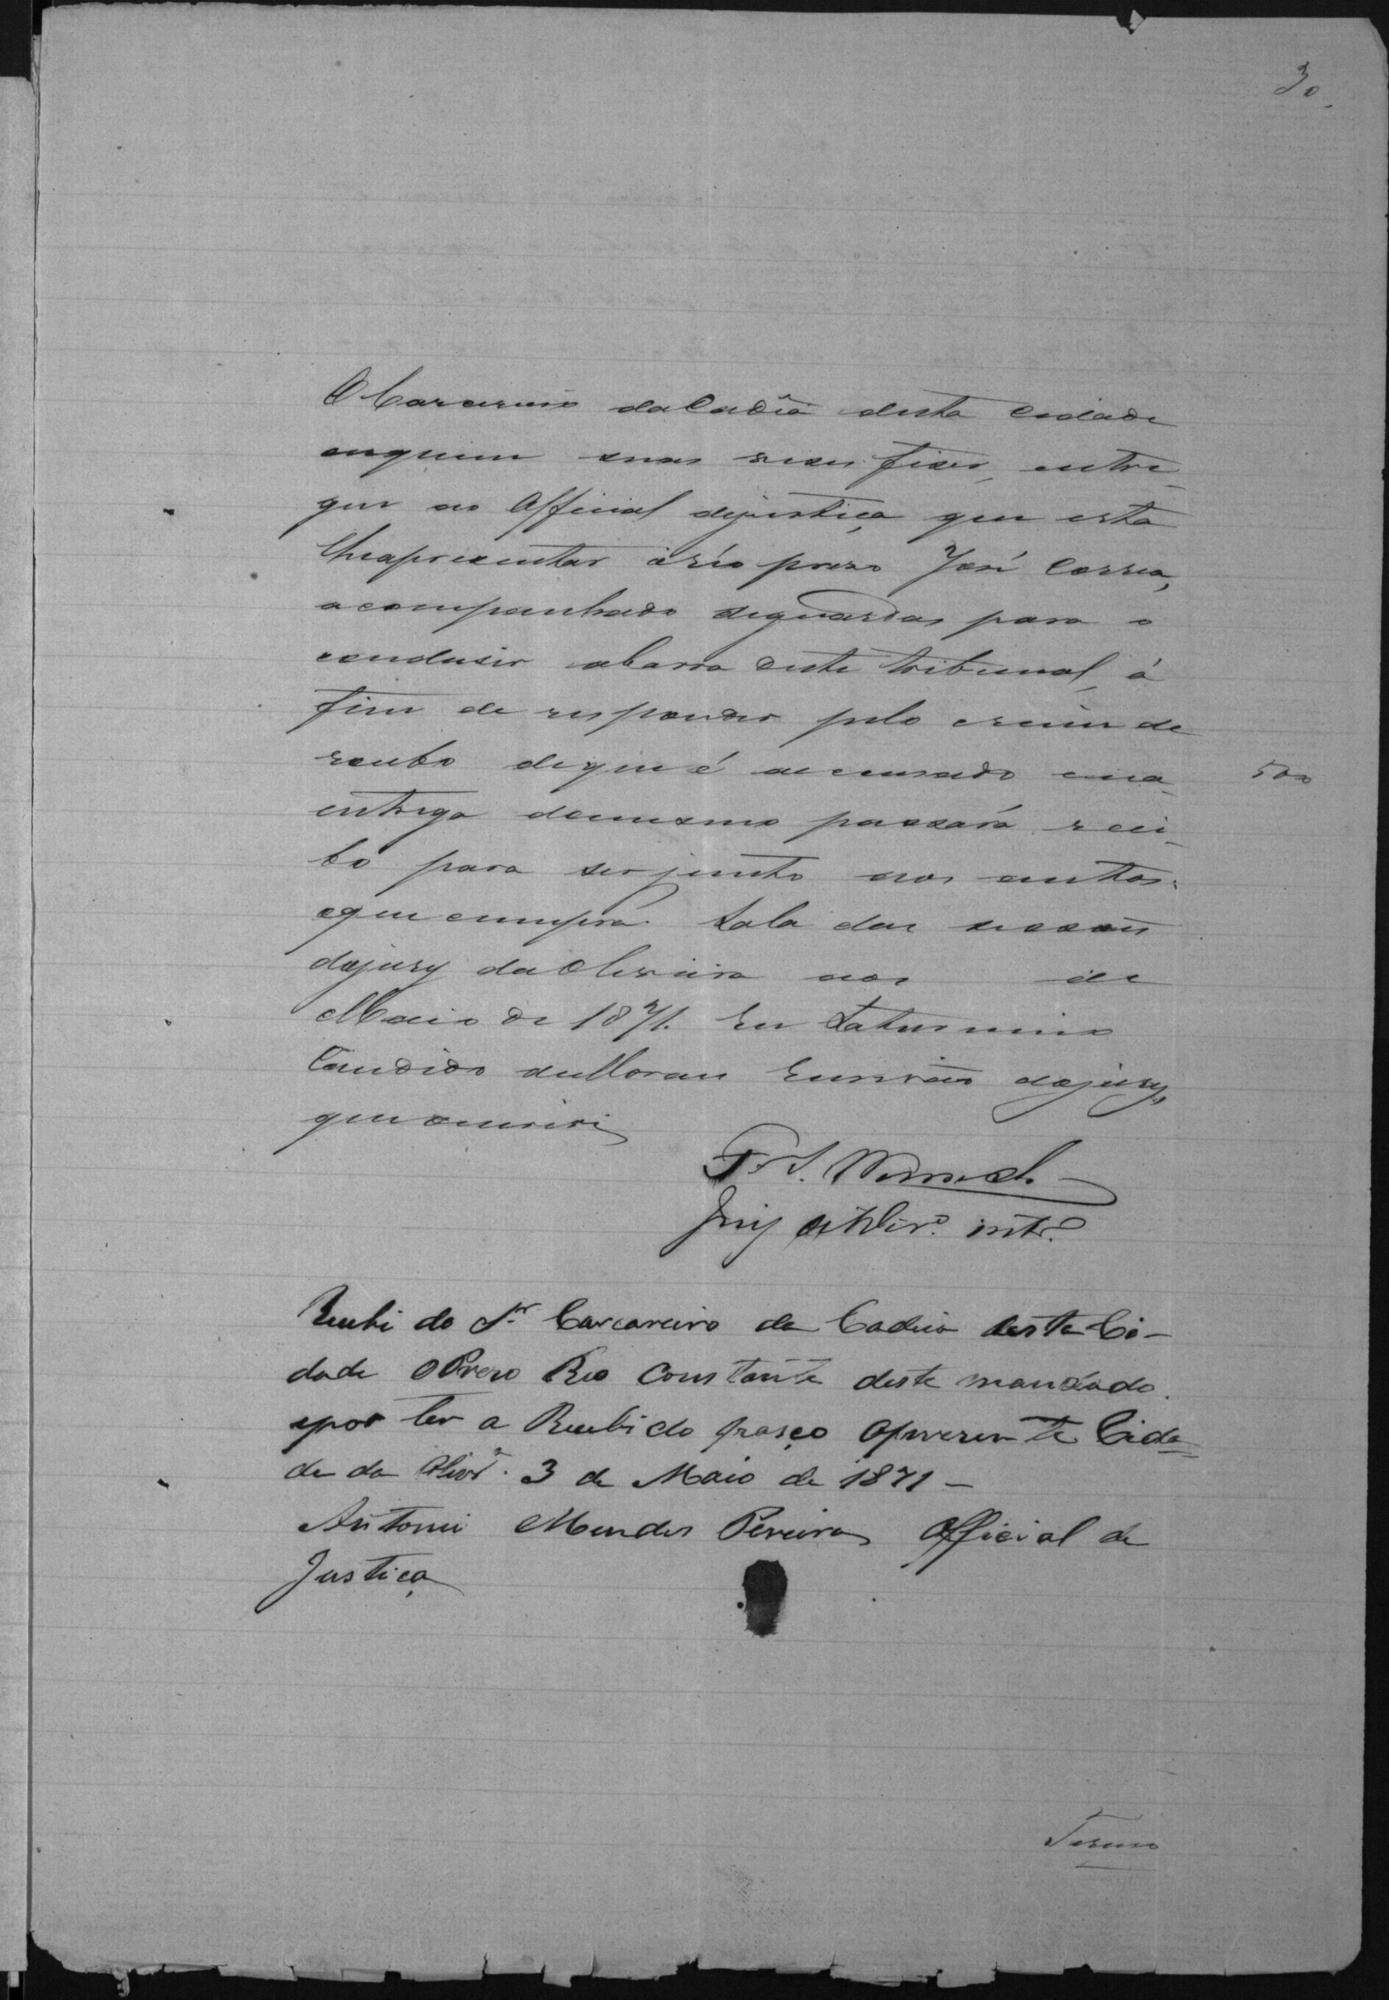 30
O Carcereiro da Cadêa desta Cidade
ou quem suas veses fiser, entre-
gue ao Official dejustiça que esta
lheapresentar o réo preso José Correa,
acompanhado deguardas para o
condusir abarra deste tribunal, á
fim de responder pelo crime de
roubo dequeé accusado ena
entrega domesmo passará reci-
bo para ser junto aos autos.
oque cumpra. Sala das sessões
dojury da Oliveira aos de
Maio de 1871. Eu Saturnino
Candido de Moraes Escrivão dojury,
que escrevi
500
Juiz de Dirº. intº.
Recebi do Sr. Carcareiro da Cadeia desta Ci-
dade o Prezo Reo Constante deste mandado.
epor ter a Recebido passo aprezente Cida-
de da Olivrª. 3 de Maio de 1871 —
Antonio Mendes Pereira Official de
Justiça
Termo